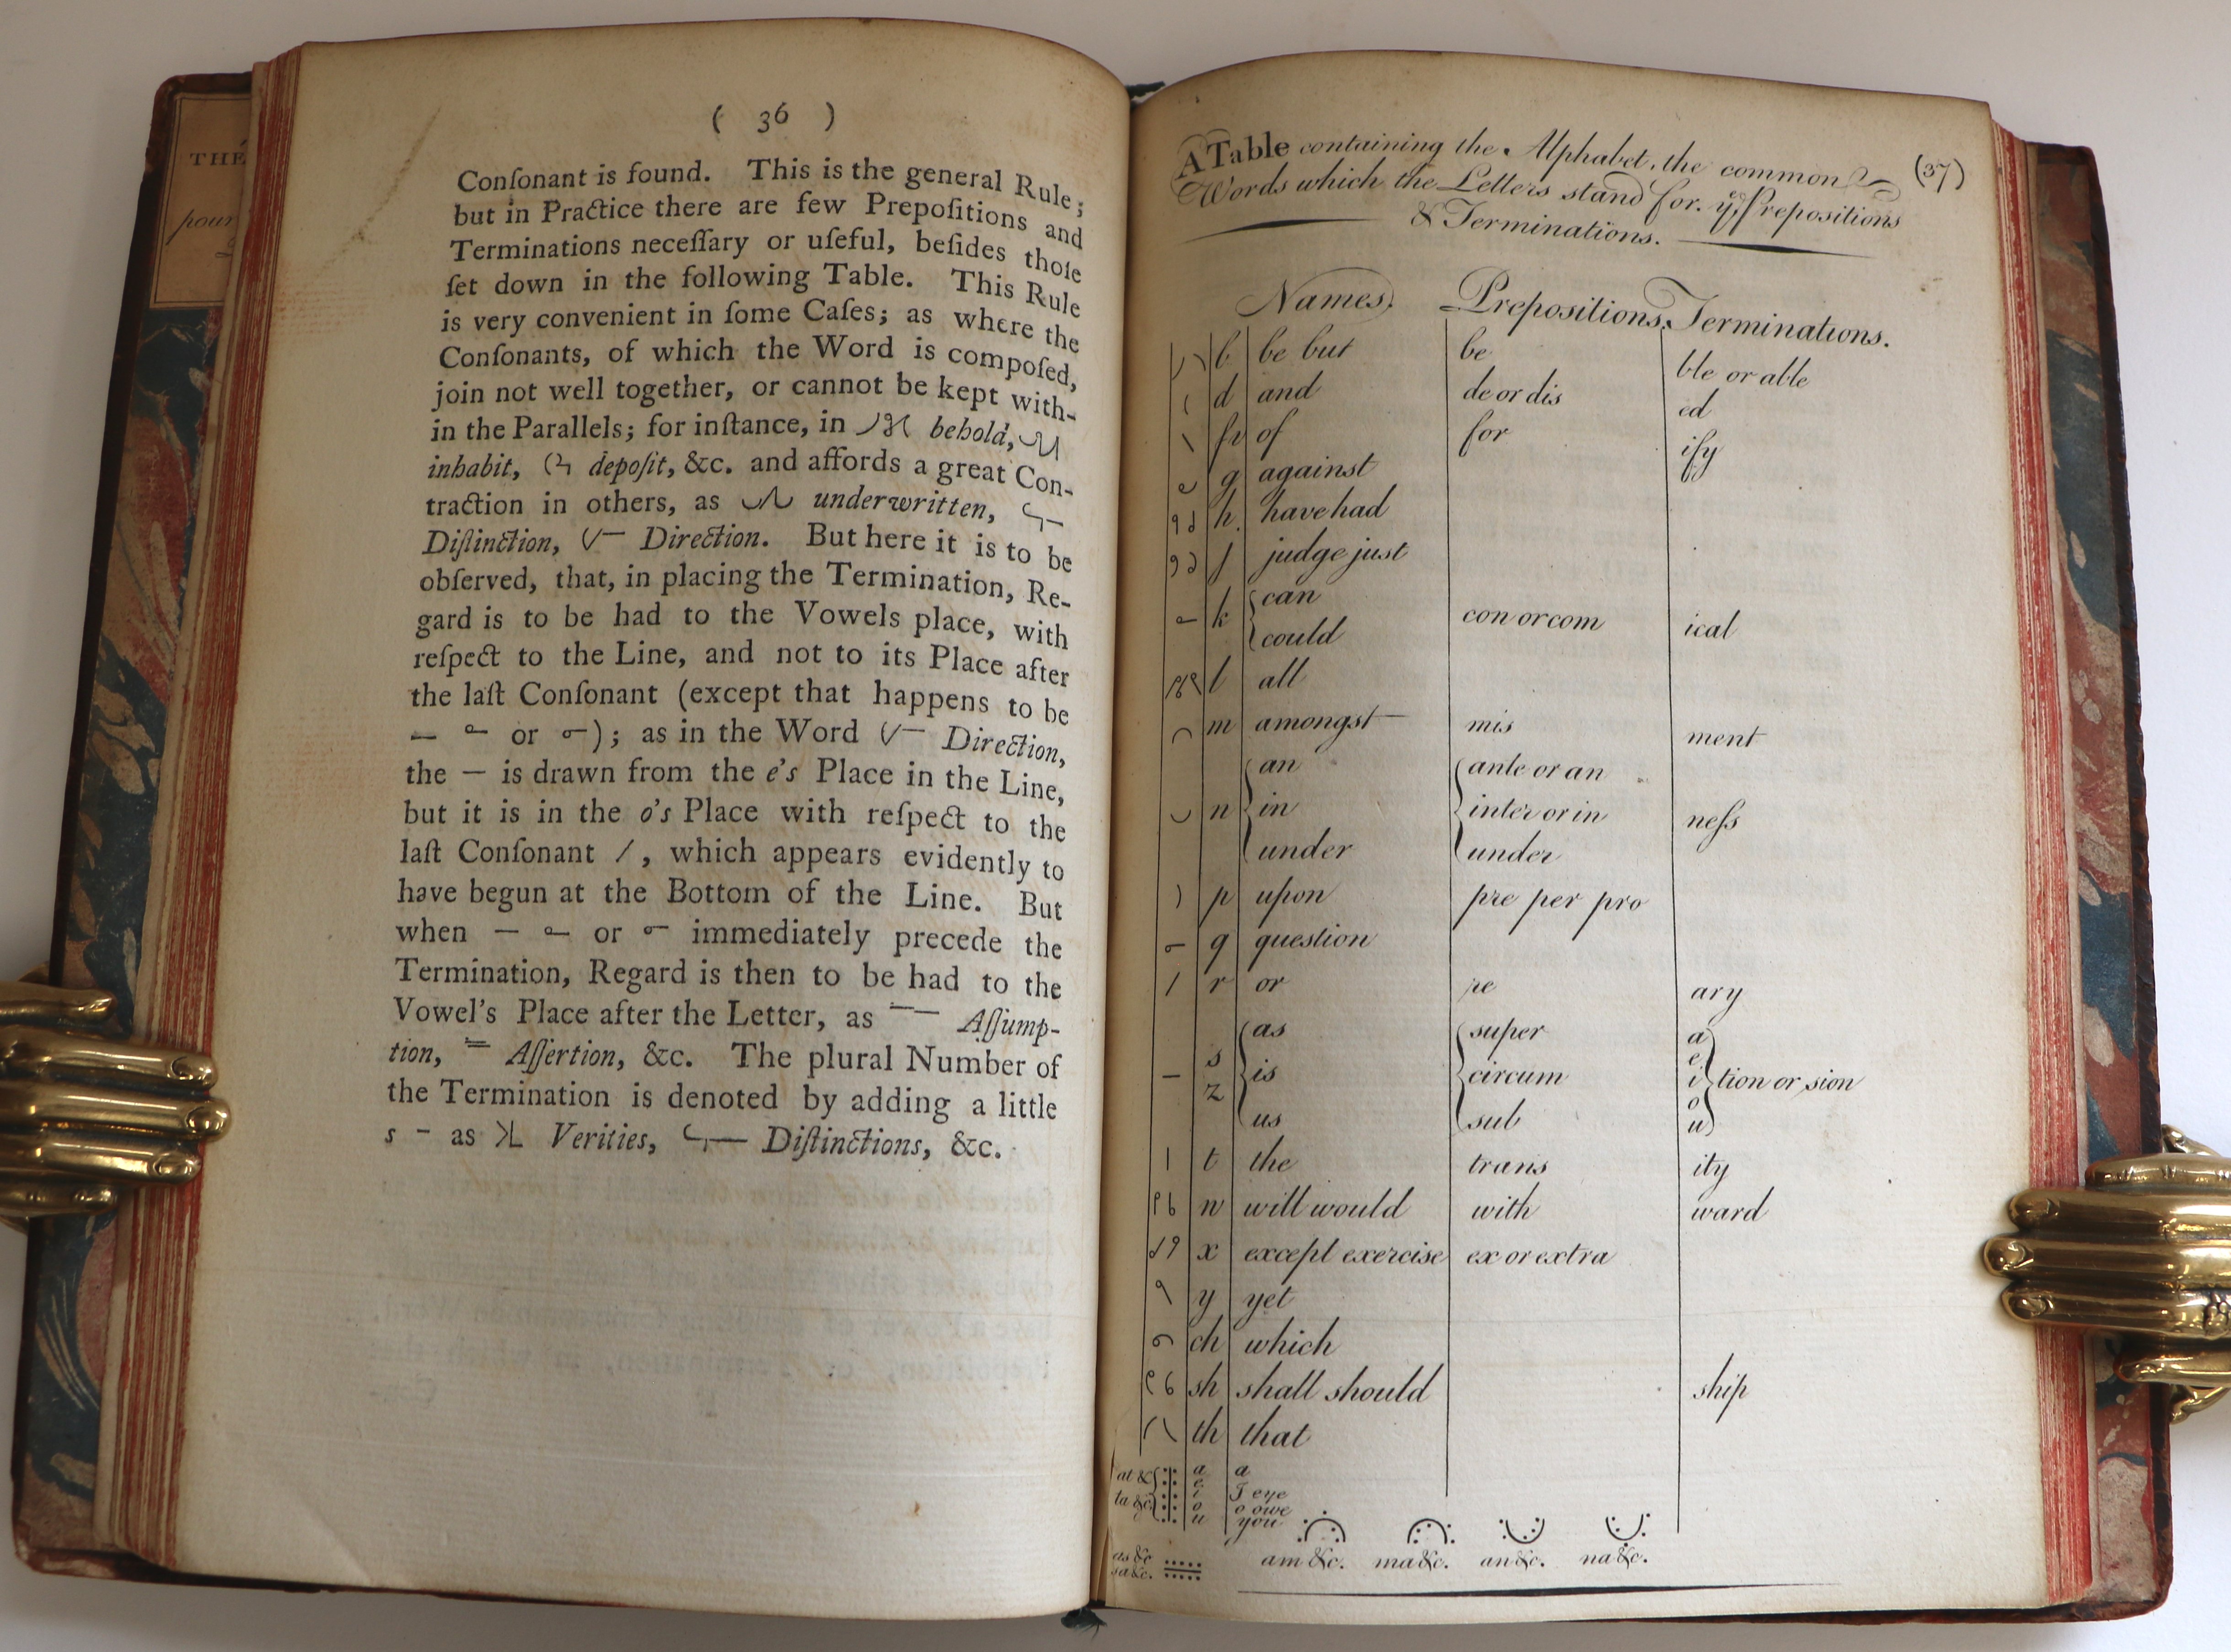 THÉ
pour
( 36 )
Conſonant is found. This is the general Rule;
but in Practice there are few Prepoſitions and
Terminations neceſſary or uſeful, beſides thoſe
ſet down in the following Table. This Rule
is very convenient in ſome Caſes; as where the
Conſonants, of which the Word is compoſed,
join not well together, or cannot be kept with-
in the Parallels; for inſtance, in behold,
inhabit, depoſit, &c. and affords a great Con-
traction in others, as underwritten,
Diſtinction, Direction. But here it is to be
obſerved, that, in placing the Termination, Re-
gard is to be had to the Vowels place, with
reſpect to the Line, and not to its Place after
the laſt Conſonant (except that happens to be
— or ); as in the Word Direction,
the — is drawn from the e's Place in the Line,
but it is in the o's Place with reſpect to the
laſt Conſonant /, which appears evidently to
have begun at the Bottom of the Line. But
when — or immediately precede the
Termination, Regard is then to be had to the
Vowel's Place after the Letter, as Aſſump-
tion, Aſſertion, &c. The plural Number of
the Termination is denoted by adding a little
s - as Verities, Diſtinctions, &c.
(37)
A Table containing the Alphabet, the common
Words which the Letters stand for, yᵉ Prepositions
& Terminations.
Names. Prepositions. Terminations.
b be but be ble or able
d and de or dis ed
fv of for ify
g against
h. have had
j judge just
k can could con or com ical
l all
m amongst mis ment
an ante or an
n in inter or in neſs
under under
p upon pre per pro
q question
r or re ary
as super a
s is circum e
z i tion or sion
us sub o
u
t the trans ity
w will would with ward
x except exercise ex or extra
y yet
ch which
sh shall should ship
th that
at &c a a
e
ta &c. i I eye
o o owe
u you
as &c
sa &c. am &c. ma &c. an &c. na &c.